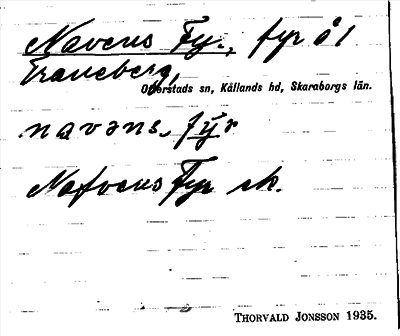 Navens Fy., fyr å l
Traneberg,
Otterstads sn, Kållands hd, Skaraborgs län.
navəns, fy̅r
Nafvens Fyr sk.
THORVALD JONSSON 1935.